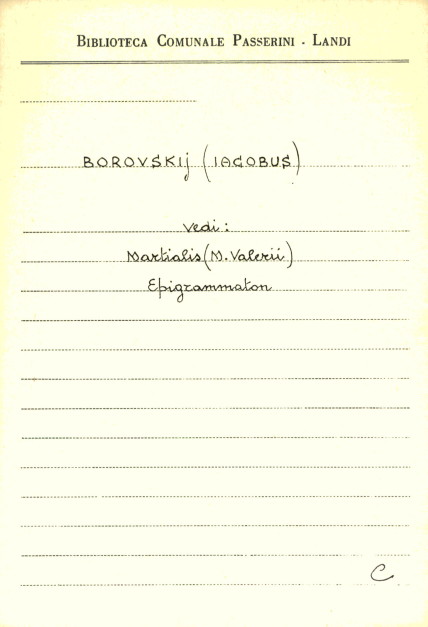 BIBLIOTECA COMUNALE PASSERINI - LANDI
BOROVSKIJ (IACOBUS)
Vedi:
Martialis (M. Valerii)
Epigrammaton
C